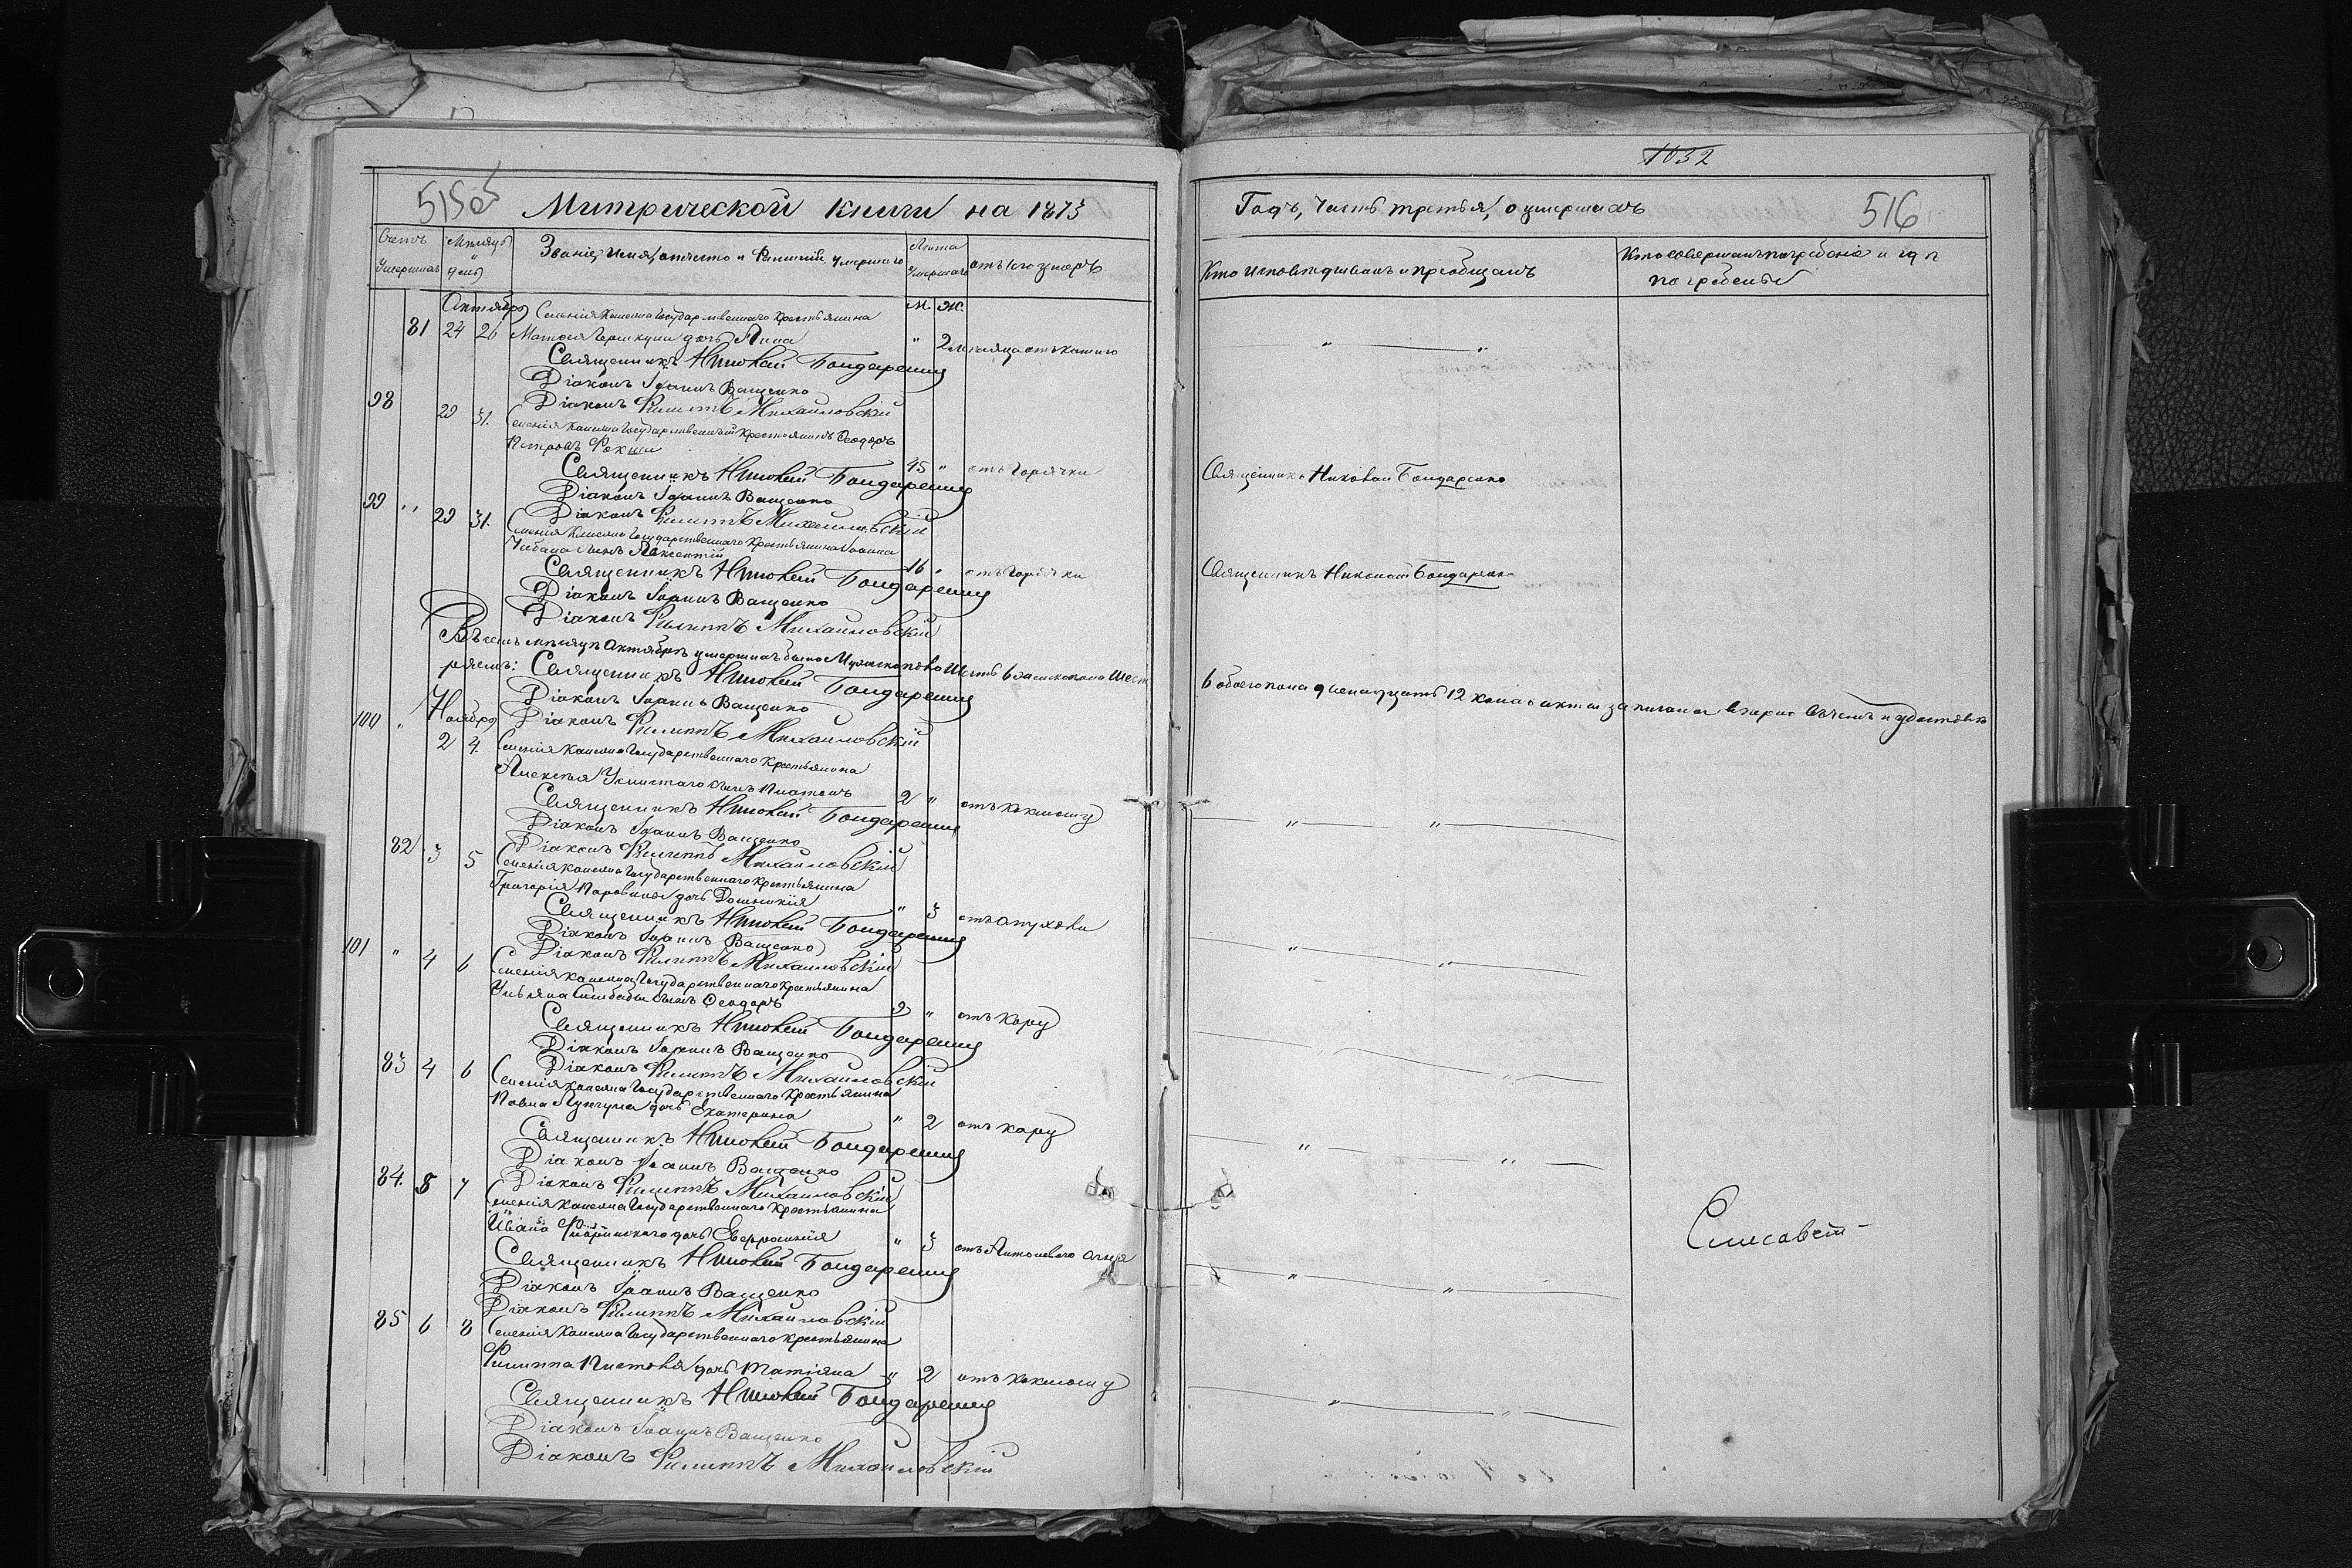 515об
Митрической книги на 1873
Счетъ умершихъ
Мѣсяцъ и день
Званіе, имя, отчество и Фамилія умершаго
Лѣта умершаго
отъ чего умеръ
Октябрь
М. Ж.
Селенія Каменна Государственнаго Крестьянина
81 24 26 дочь Анна " 2 мѣсяца отъ кашлю
Священникъ Николай Бондаренко
Діаконъ Іоаннъ Ващенко
Діаконъ Филиппъ Михайловскій
98 29 31. Селенія Каменна Государственный Крестьянинъ Ѳеодоръ
Петровъ Фокша 45 " отъ горячки
Священникъ Николай Бондаренко
Діаконъ Іоаннъ Ващенко
Діаконъ Филиппъ Михайловскій
99 " 29 31. Селенія Каменна Государственнаго Крестьянина Іоанна
Чебана сынъ 16 " отъ горячки
Священникъ Николай Бондаренко
Діаконъ Іоаннъ Ващенко
Діаконъ Филиппъ Михайловскій
Въ семъ мѣсяцѣ Октябрѣ умершихъ было Мужского пола Шесть 6 женскаго пола Шест
ряемъ: Священникъ Николай Бондаренко
Діаконъ Іоаннъ Ващенко
Діаконъ Филиппъ Михайловскій
Ноябрь
100 " 2 4. Селенія Каменна Государственнаго Крестьянина
Алексѣя сынъ Платонъ 2 " отъ коклюшу
Священникъ Николай Бондаренко
Діаконъ Іоаннъ Ващенко
Діаконъ Филиппъ Михайловскій
82 3 5 Селенія Каменна Государственнаго Крестьянина
Григорія дочь Домникія " 3 отъ опухоли
Священникъ Николай Бондаренко
Діаконъ Іоаннъ Ващенко
Діаконъ Филиппъ Михайловскій
101 " 4 6 Селенія Каменна Государственнаго Крестьянина
Ульяна сынъ Ѳеодоръ 2 " отъ кору
Священникъ Николай Бондаренко
Діаконъ Іоаннъ Ващенко
Діаконъ Филиппъ Михайловскій
83 4 6 Селенія Каменна Государственнаго Крестьянина
Павла дочь Екатерина " 2 отъ кору
Священникъ Николай Бондаренко
Діаконъ Іоаннъ Ващенко
Діаконъ Филиппъ Михайловскій
84. 5 7 Селенія Каменна Государственнаго Крестьянина
Ивана дочь Евфросинія " 3 отъ Антоневого огня
Священникъ Николай Бондаренко
Діаконъ Іоаннъ Ващенко
Діаконъ Филиппъ Михайловскій
85 6 8 Селенія Каменна Государственнаго Крестьянина
Филиппа дочь Матіяна " 2 отъ коклюшу
Священникъ Николай Бондаренко
Діаконъ Іоаннъ Ващенко
Діаконъ Филиппъ Михайловскій
1032
Годъ, часть третья, о умершихъ
516
Кто исповѣдывалъ и пріобщалъ
Кто совершалъ погребеніе и гдѣ погребены
" "
Священникъ Николай Бондаренко
Священникъ Николай Бондаренко
6 обоего пола двенадцать 12 каковые акты записаны вѣрно въ чемъ и удостовѣ
" "
" "
" "
" "
Елисавет
" "
" "